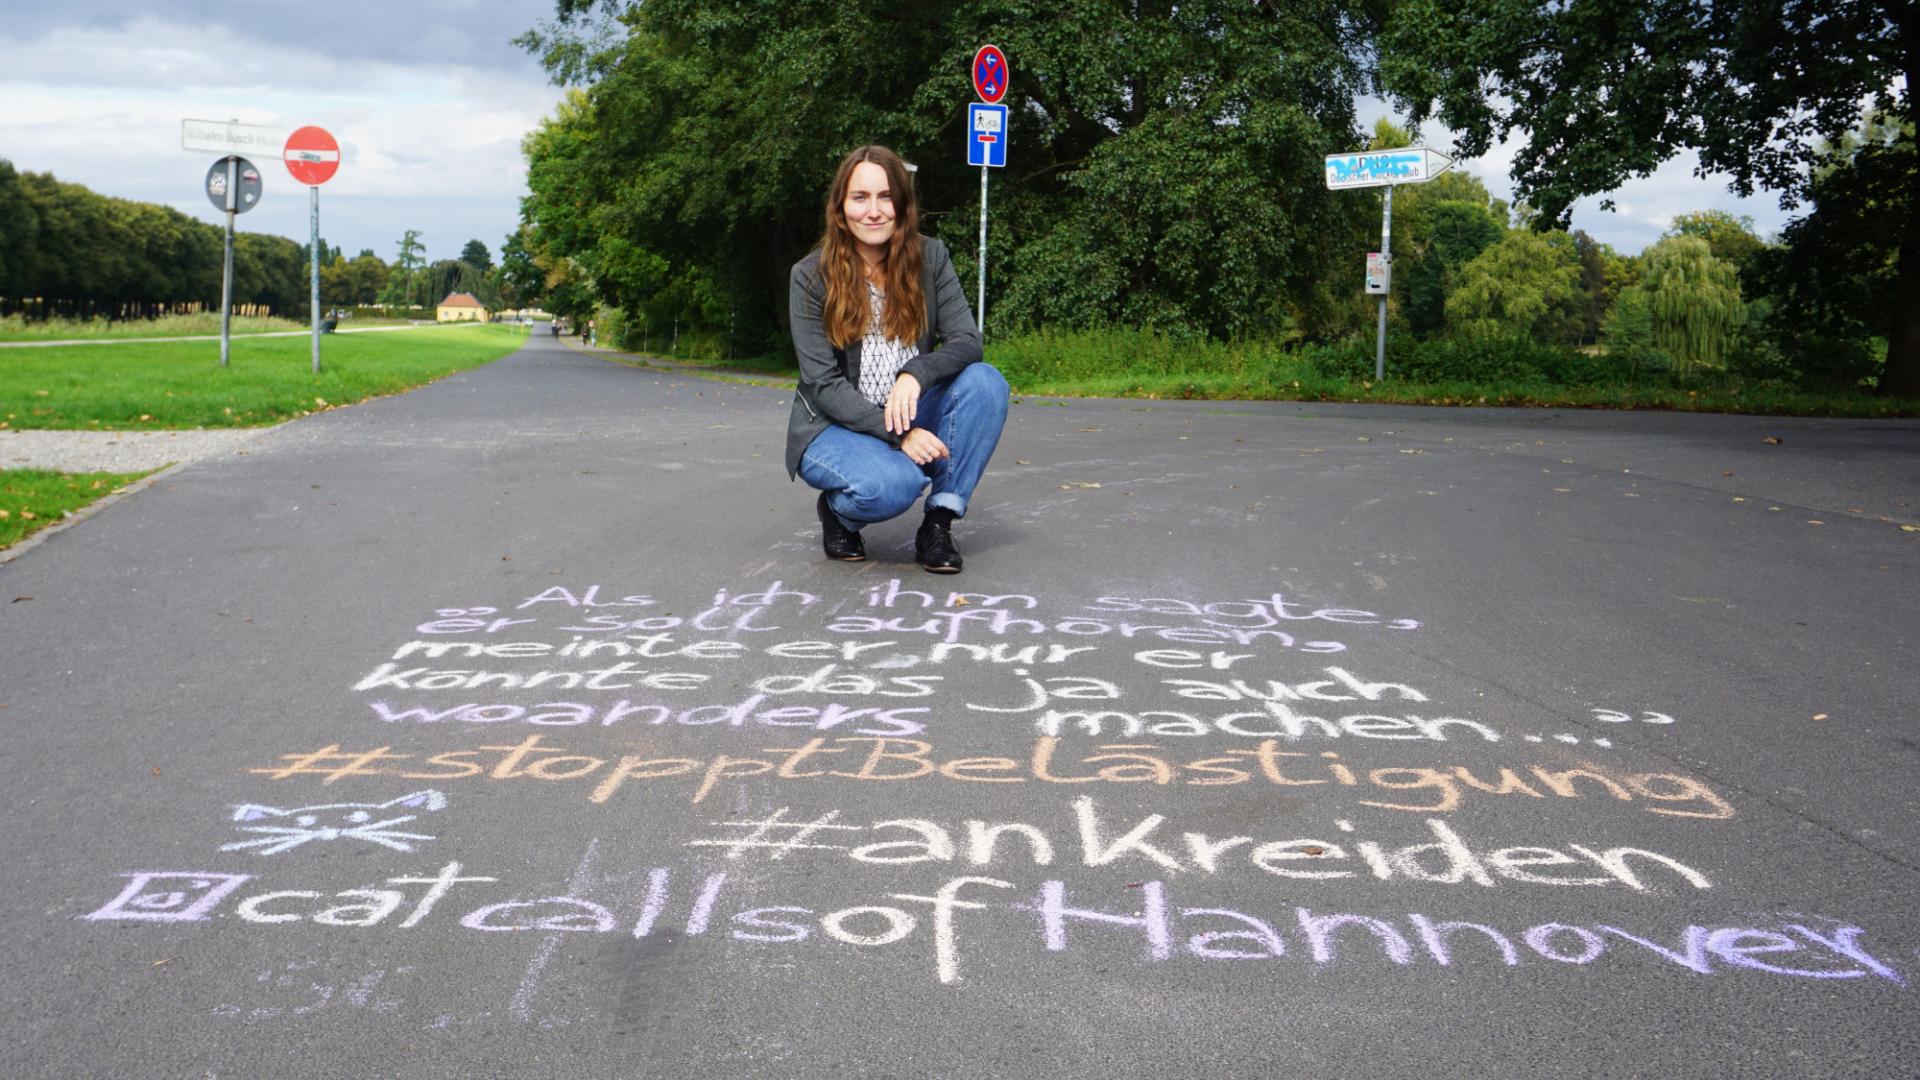 Wilhelm-Busch-Mu
Deutscher
Als ich ihm sagte,
er soll aufhören,
meinte er nur er
konnte das ja auch
woanders machen..."
#stopptBelästigung
#ankreiden
catcallsofHannover